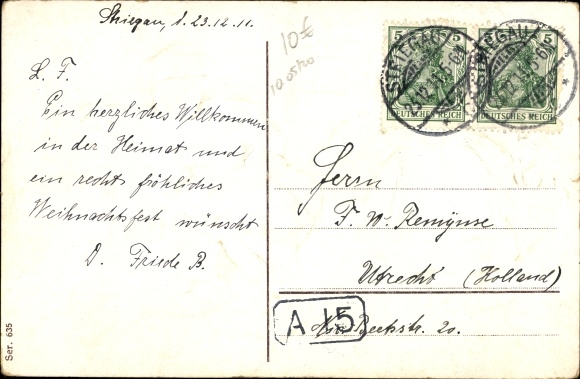 Striegau, d. 23.12.11.
10 €
L. F.
Ein herzliches Willkommen
in der Heimat und
ein recht fröhliches
Weihnachtsfest wünscht
D. Friede B.
5 5
5
DEUTSCHES REICH
DEUTSCHES REICH
STRIEGAU
STRIEGAU
Herrn
F. W. Remijnse
Utrecht (Holland)
Beekstr. 20.
A 15
Ser. 635